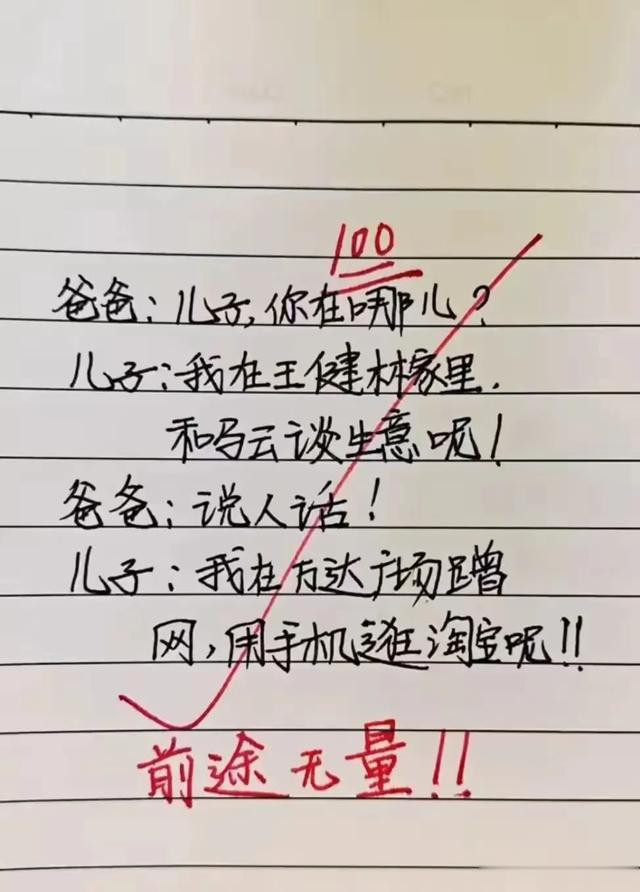 100
爸爸：儿子，你在哪儿？
儿子：我在王健林家里.
和马云谈生意呢！
爸爸：说人话！
儿子：我在万达广场蹭
网，用手机逛淘宝呢！！
前途无量！！